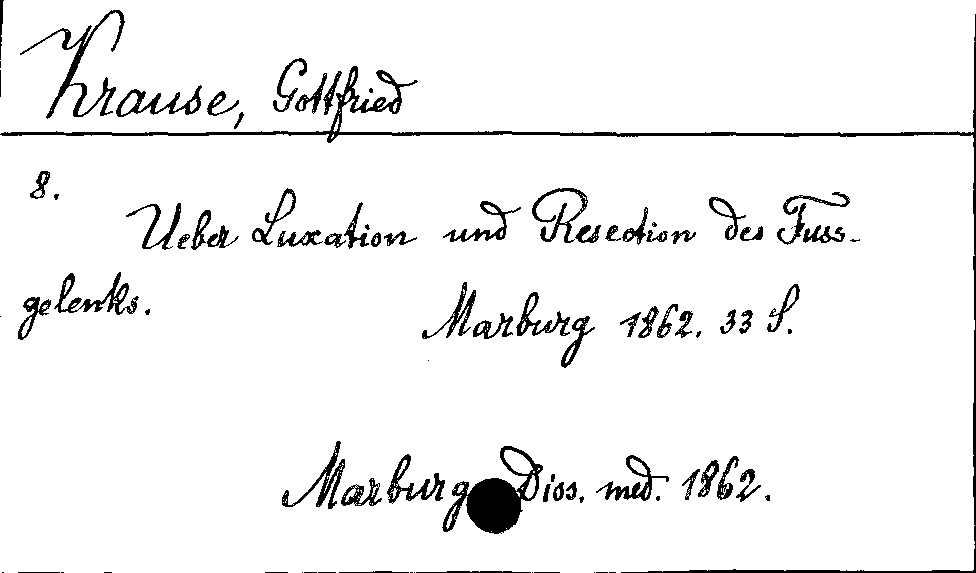 Krause, Gottfried
8.
Ueber Luxation und Resection des Fuss-
gelenks.
Marburg 1862. 33 S.
Marburg Diss. med. 1862.